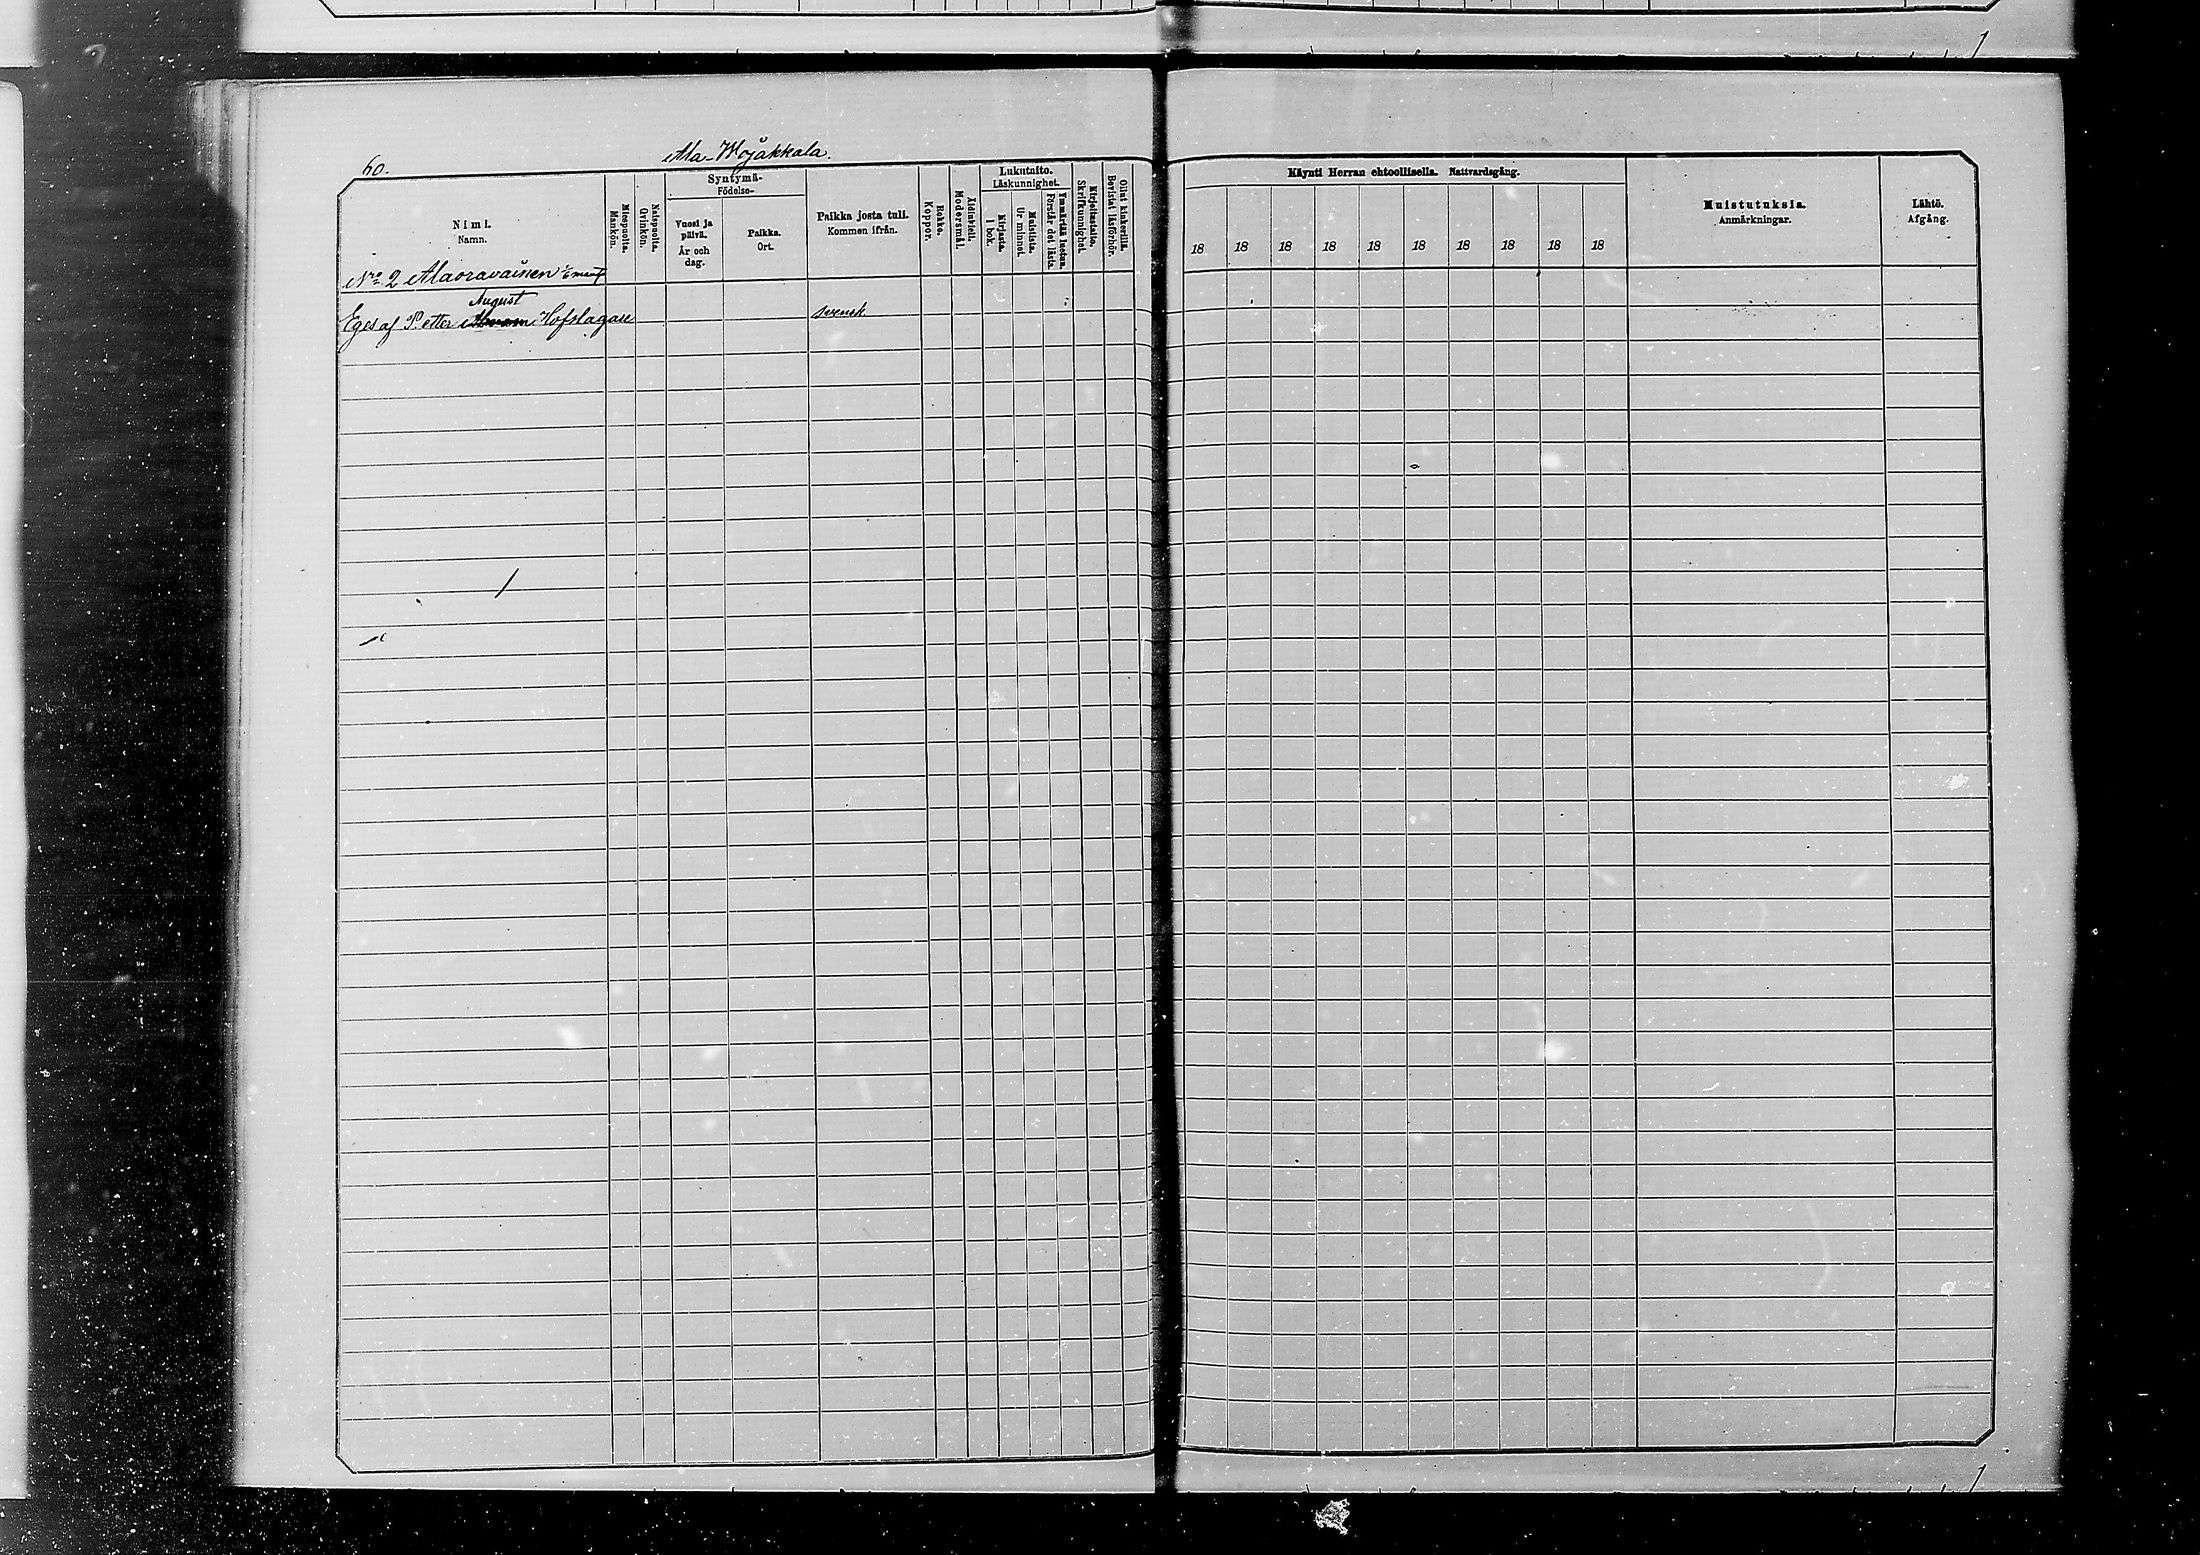 60.
Ala-Wojakkala.
Nimi.
Namn.
Miespuolia.
Mankön.
Naispuolia.
Qvinkön.
Syntymä-
Födelse-
Vuosi ja
päivä.
År och
dag.
Paikka.
Ort.
Paikka josta tuli.
Kommen ifrån.
Rokko.
Koppor.
Äidinkieli.
Modersmål.
Lukutaito.
Läskunnighet.
Kirjasta.
I bok.
Muistista.
Ur minnet.
Ymmärtää luetun.
Förstår det lästa.
Kirjoitustaito.
Skrifkunnighet.
Ollut kinkerillä.
Bevistat läsförhör.
Käynti Herran ehtoollisella. Nattvardsgång.
18 18 18 18 18 18 18 18 18 18
Muistutuksia.
Anmärkningar.
Lähtö.
Afgång.
No 2 Alaoravainen
August
Eges af Petter Hofslagare svensk